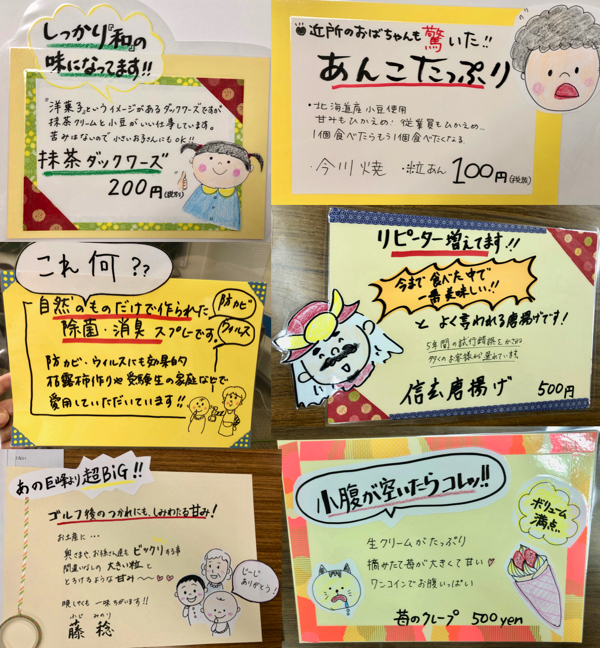 しっかり『和』の
味になってます!!
"洋菓子"というイメージがあるダックワーズですが
抹茶クリームと小豆がいい仕事しています。
苦みはないので小さいお子さんにもOK!!
抹茶ダックワーズ
200円(税別)
近所のおばちゃんも驚いた!!
あんこたっぷり
・北海道産小豆使用
甘みもひかえめ・従業員もひかえめ…
1個食べたらもう1個食べたくなる
・今川焼 ・粒あん 100円(税抜)
これ何??
自然のものだけで作られた
除菌・消臭スプレーです。
防カビ
ウィルス
防カビ・ウィルスにも効果的
枯露柿作りや受験生の家庭などで
愛用していただいています!!
リピーター増えてます!!
今まで食べた中で
一番美味しい!!
とよく言われる唐揚げです!
5年間の試行錯誤をかさね
多くのお客様が並れています
信玄唐揚げ 500円
あの巨峰より超BiG!!
ゴルフ後のつかれにも、しみわたる甘み!
お土産に…
奥さまや、お孫さん達もビックリする事
間違いなしの大きい粒と
とろけるような甘み〜♡♡
冷しても一味ちがいます!!
ふじ みのり
藤稔
じーじ
ありがとう!
小腹が空いたらコレッ!!
ボリューム
満点
生クリームがたっぷり
摘みたて苺が大きくて甘い♥
ワンコインでお腹いっぱい
苺のクレープ 500yen